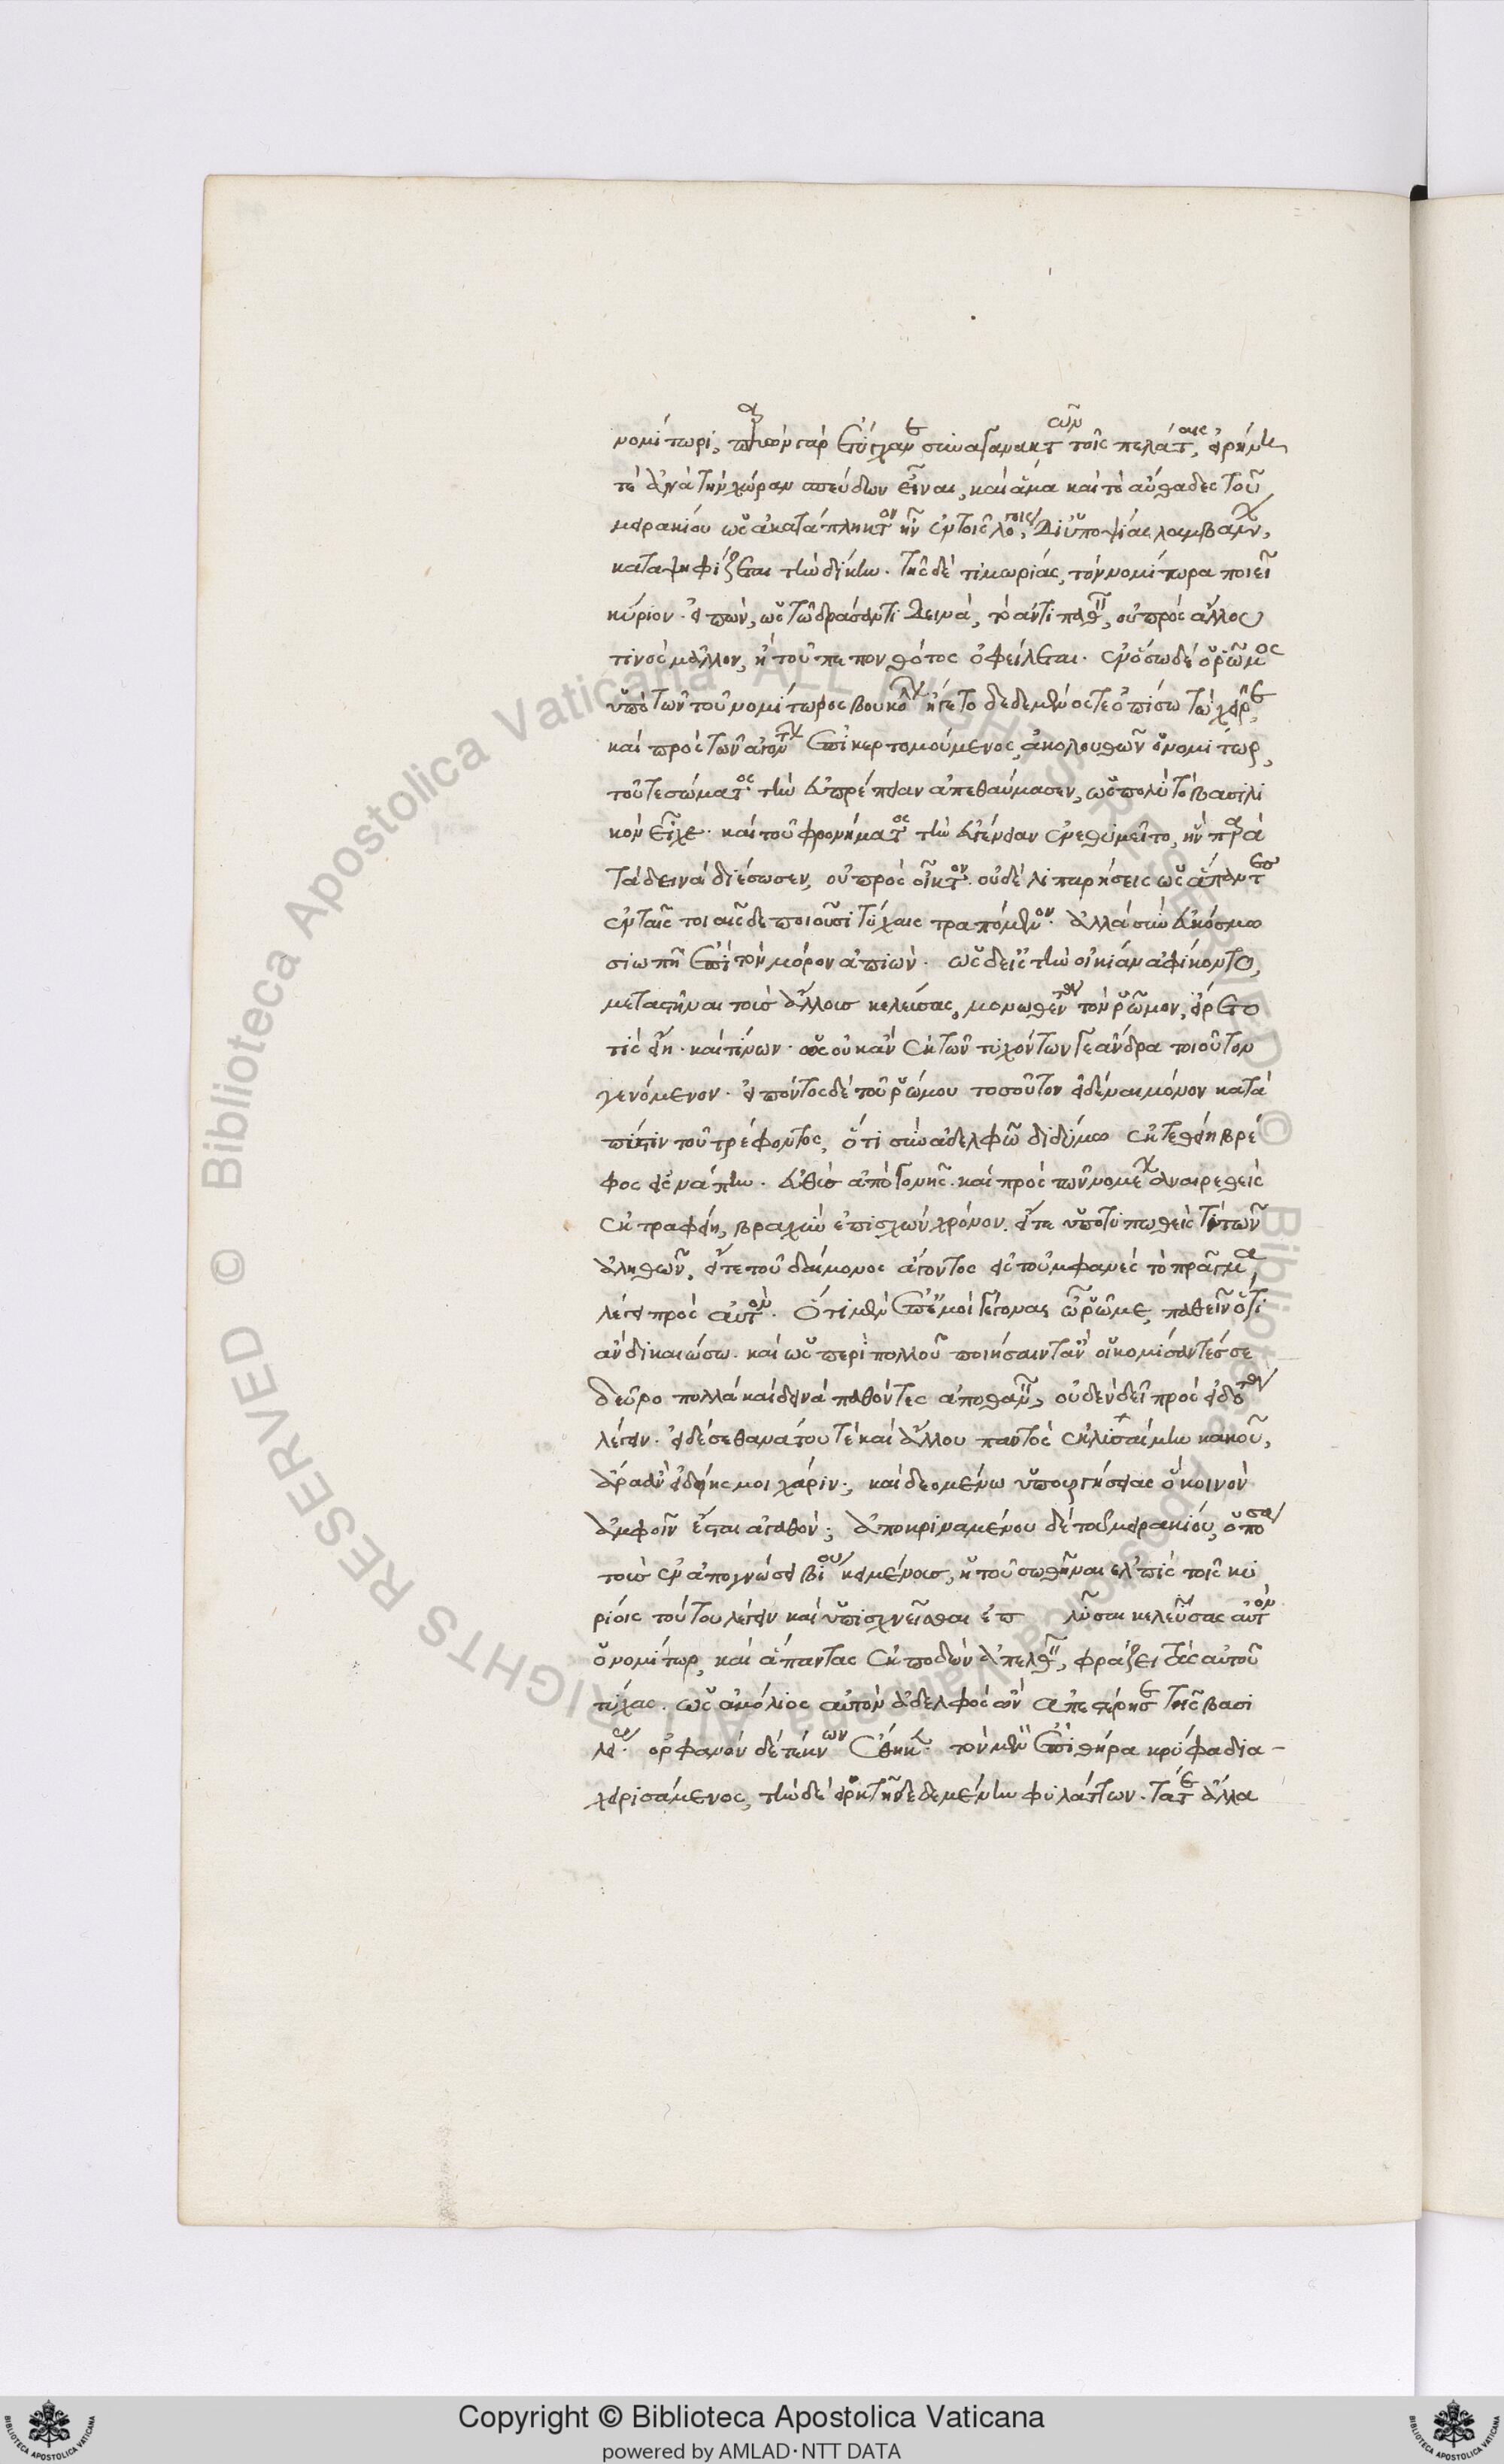 νομίτωρι, πλῆθον γὰρ ἐτύγχανε συναγανακτῶν τοῖς πελάταις, εἰρήνην
τε ἀνὰ τὴν χώραν σπεύδων εἶναι, καὶ ἅμα καὶ τὸ αὔθαδες τοῦ
μειρακίου ὡς ἀκατάπληκτον ἦν ἐν τοῖς λόγοις, δι' ὑποψίας λαμβάνων,
καταψηφίζεται τὴν δίκην. τῆς δὲ τιμωρίας, τὸν νομίτωρα ποιεῖ
κύριον. εἰπών, ὡς τῶ δράσαντι δεινά, τὸ ἀντιπαθεῖν, οὐ πρὸς ἄλλου
τινὸς μᾶλλον, ἢ τοῦ πεπονθότος ὀφείλεται. ἐν ὅσω δὲ ὁ ῥῶμος
ὑπὸ τῶν τοῦ νομίτωρος βουκόλων ἤγετο δεδεμένος τε ὀπίσω τὼ χεῖρε,
καὶ πρὸς τῶν ἀγόντων ἐπικερτομούμενος, ἀκολουθῶν ὁ νομίτωρ,
τοῦ τε σώματος τὴν εὐπρέπειαν ἀπεθαύμασεν, ὡς πολὺ τὸ βασιλι
κὸν εἶχε. καὶ τοῦ φρονήματος τὴν εὐγένειαν ἐνεθυμεῖτο, ἣν παρὰ
τὰ δεινὰ διέσωσεν, οὐ πρὸς οἶκτον. οὐδὲ λιπαρήσεις ὡς ἅπαντες
ἐν ταῖς τοιαῖσδε ποιοῦσι τύχαις τραπόμενον. ἀλλὰ σὺν εὐκόσμω
σιωπῆ ἐπὶ τὸν μόρον ἀπιών. ὡς δ' εἰς τὴν οἰκίαν ἀφίκοντο,
μεταστῆναι τοὺς ἄλλους κελεύσας, μονωθέντα τὸν ῥῶμον, ἤρετο
τίς εἴη. καὶ τίνων. ὡς οὐκ ἂν ἐκ τῶν τυχόντων γε ἄνδρα τοιοῦτον
γενόμενον. εἰπόντος δὲ τοῦ ῥώμου τοσοῦτον εἰδέναι μόνον κατὰ
πύστιν τοῦ τρέφοντος, ὅτι σὺν ἀδελφῶ διδύμω ἐκτεθείη βρέ
φος εἰς νάπην. εὐθὺς ἀπὸ γονῆς. καὶ πρὸς τῶν νομέων ἀναιρεθεὶς
ἐκτραφείη, βραχὺν ἐπισχὼν χρόνον. εἴτε ὑποτυπωθεὶς τὶ τῶν
ἀληθῶν, εἴτε τοῦ δαίμονος ἄγοντος εἰς τοὐμφανὲς τὸ πρᾶγμα,
λέγει πρὸς αὐτόν. ὅτι μὲν ἐπ' ἐμοὶ γέγονας ὦ ῥῶμε, παθεῖν ὅ τι
ἂν δικαιώσω. καὶ ὡς περὶ πολλοῦ ποιήσαιντ' ἂν οἱ κομίσαντές σε
δεῦρο πολλὰ καὶ δεινὰ παθόντες ἀποθανεῖν, οὐδὲν δεῖ πρὸς εἰδότα
λέγειν. εἰ δέ σε θανάτου τε καὶ ἄλλου παντὸς ἐκλυσαίμην κακοῦ,
ἆρ' ἂν εἰδείης μοι χάριν; καὶ δεομένω ὑπουργήσειας ὃ κοινὸν
ἀμφοῖν ἔσται ἀγαθόν; ἀποκριναμένου δὲ τοῦ μειρακίου, ὁπόσα
τοὺς ἐν ἀπογνώσει βίου κειμένους, ἡ τοῦ σωθῆναι ἐλπὶς τοῖς κυ
ρίοις τούτου λέγειν καὶ ὑπισχνεῖσθαι ἐπ λῦσαι κελεύσας αὐτὸν
ὁ νομίτωρ, καὶ ἅπαντας ἐκποδὼν ἀπελθεῖν, φράζει τὰς αὐτοῦ
τύχας. ὡς ἀμόλιος αὐτὸν ἀδελφὸς ὢν ἀπεστέρησε τῆς βασι
λείας. ὀρφανὸν δὲ τέκνων ἔθηκε. τὸν μὲν ἐπὶ θήρα κρύφα δια-
χειρισάμενος, τὴν δὲ εἱρκτῆ δεδεμένην φυλάττων. τά τε ἄλλα
Copyright © Biblioteca Apostolica Vaticana
powered by AMLAD·NTT DATA